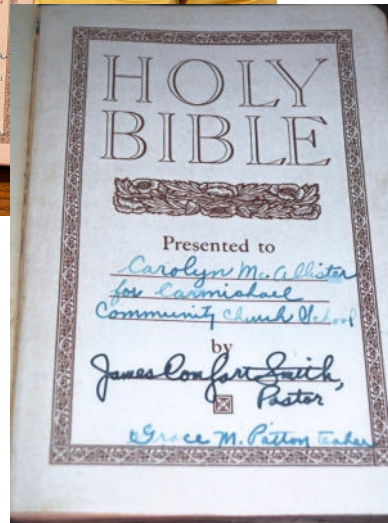 HOLY
BIBLE
Presented to
Carolyn McAllister
for Carmichael
Community Church School
by
James Comfort Smith,
Pastor
Grace M. Patton Teacher